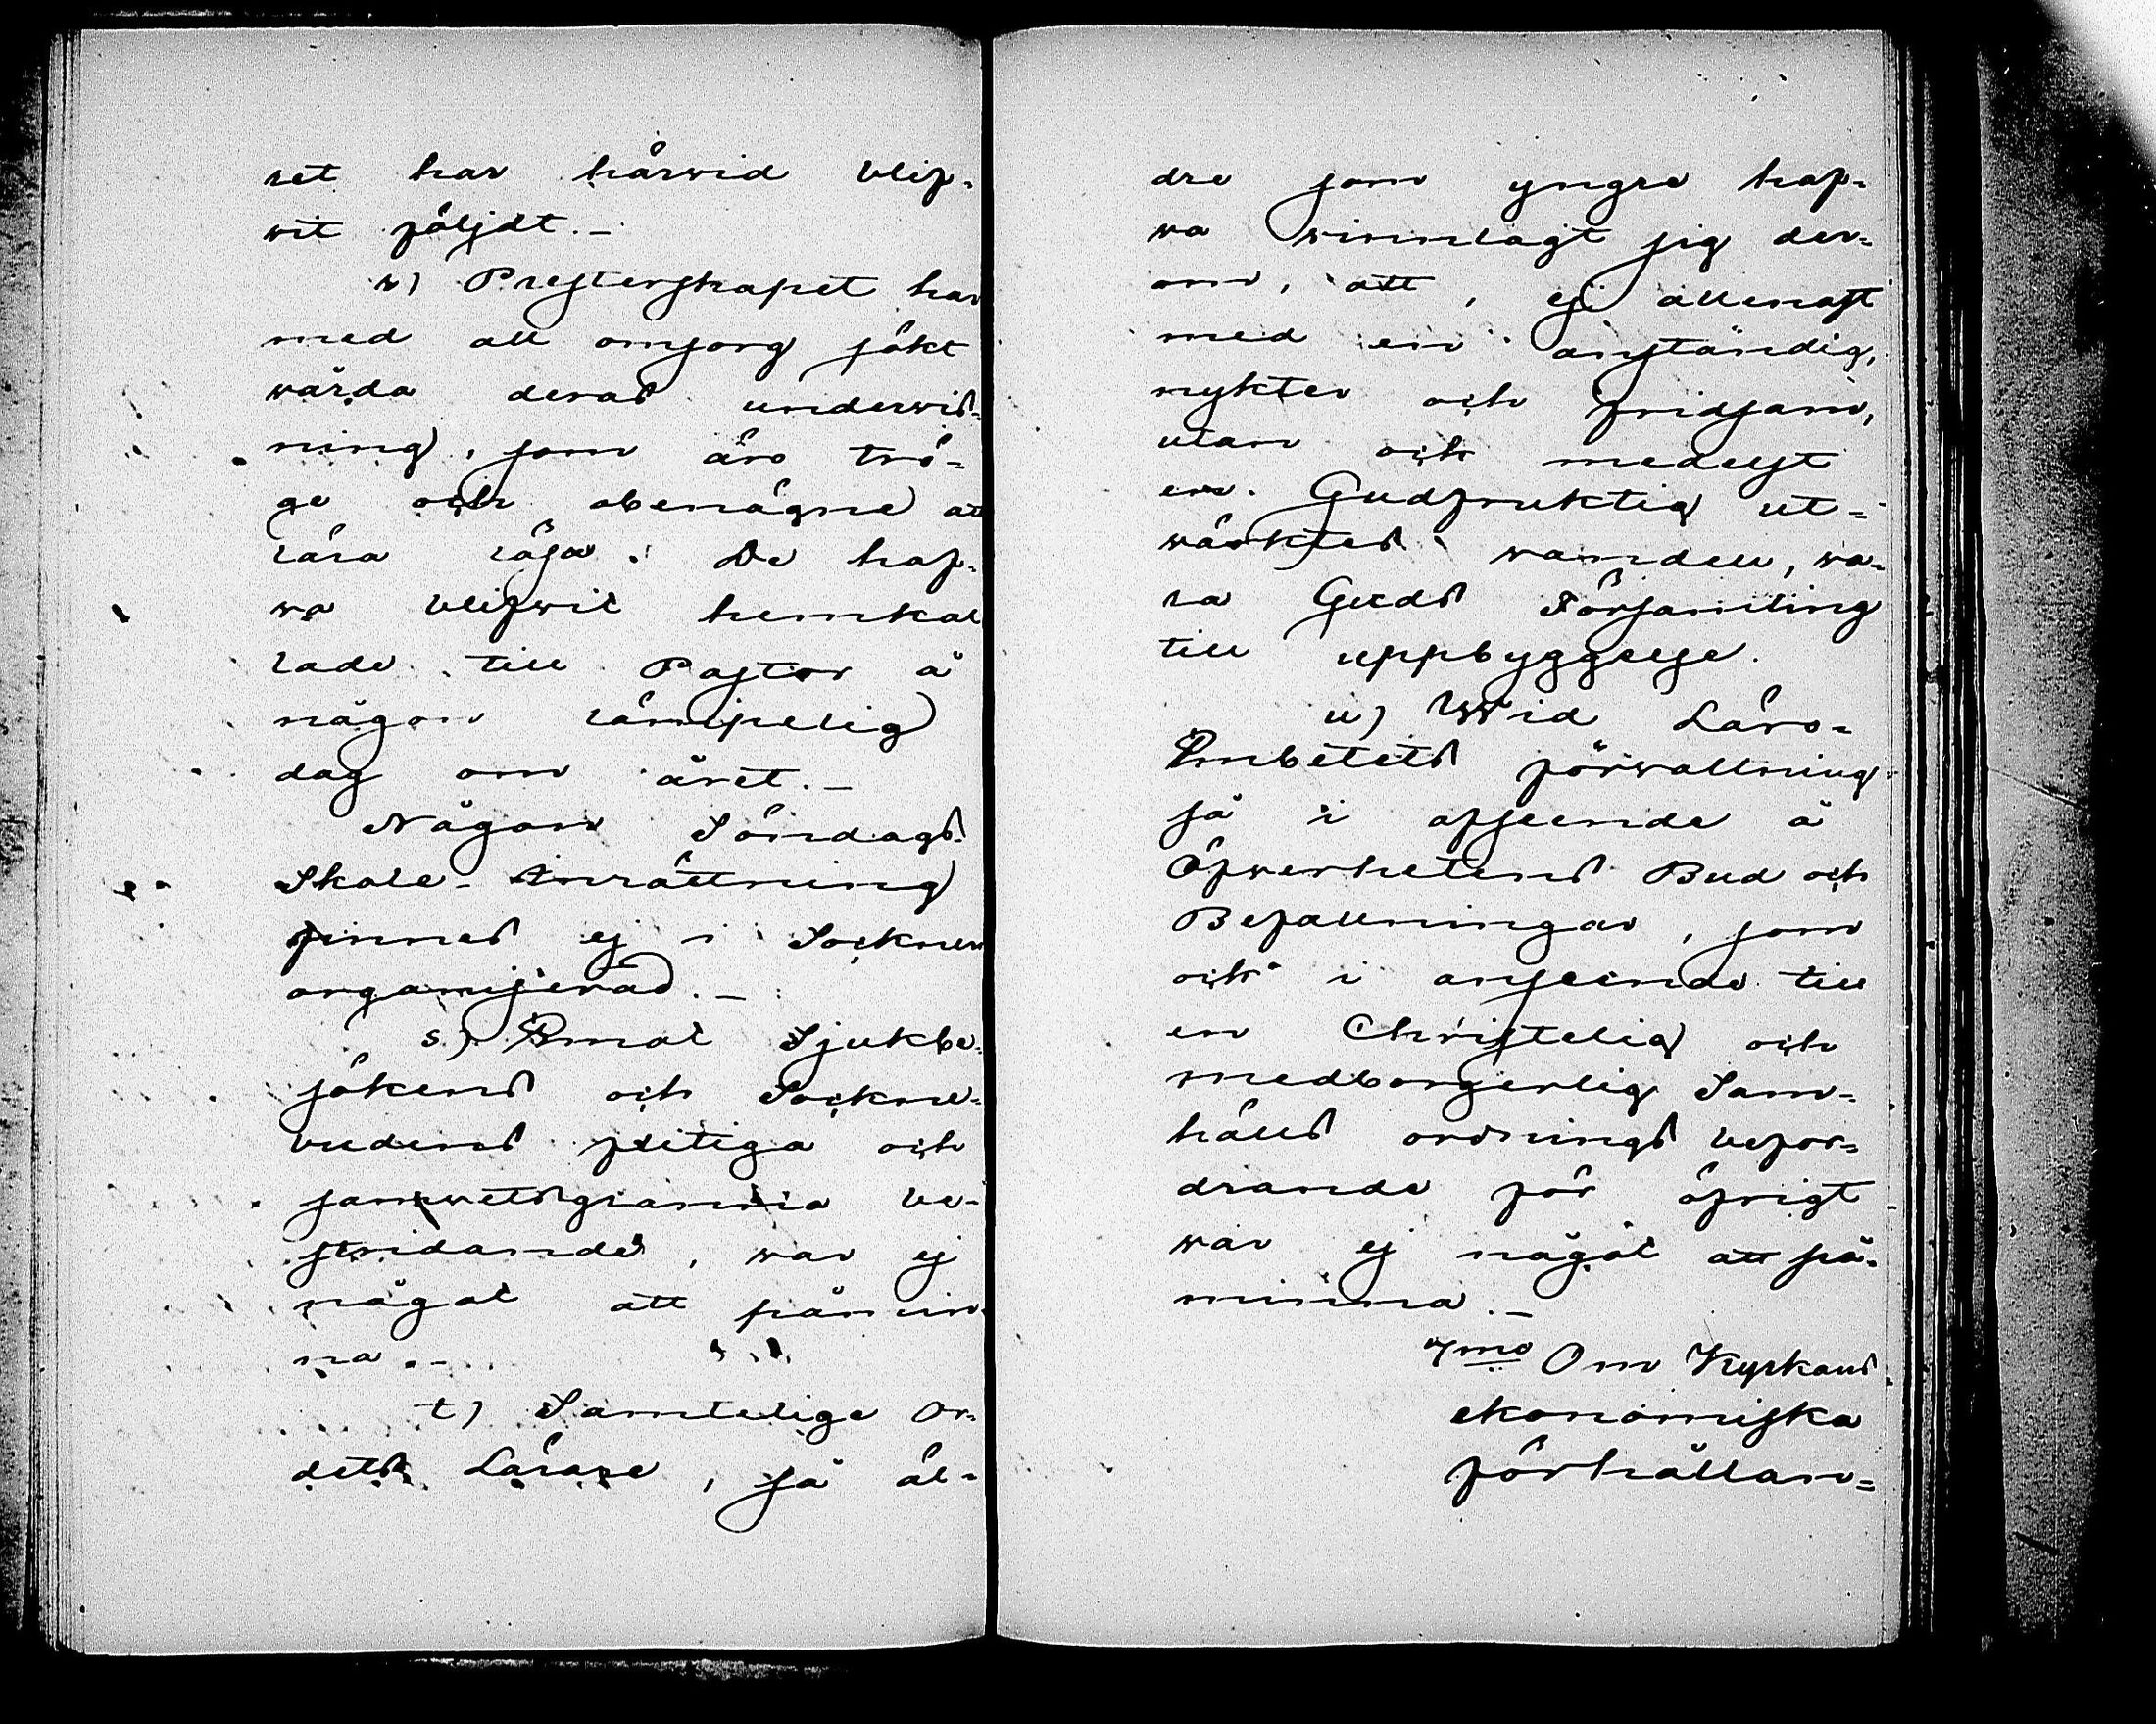 ret har härvid blif-
wit följdt.–
r) Presterskapet har
med all omsorg sökt
wårda deras underwis-
ning, som äro trö-
ge och obenägne att
lära läsa. De haf-
wa blifwit hemkal
lade till Pastor å
någon lämpelig
dag om året.–
Någon Söndags-
Skole-Inrättning
finnes ej i Socknen
organiserad.–
s) Emot Sjukbe-
sökens och Sockne-
budens flitiga och
samwetsgranna be-
stridande, war ej
något att påmin
na.–
t) Samtelige Or-
dets Lärare, så äl-
dre som yngre haf-
wa winnlagt sig der-
om, att, ej allenast
med en anständig,
nykter och fridsam,
utan ock medelst
en Gudfruktig ut-
wärktes wandell, wa-
ra Guds Församling
till uppbyggelse.
u) Wid Läro-
Embetets förwaltning
så i afseende å
Öfwerhetens Bud och
Befallningar, som
ock i anseende till
en Christelig och
medborgerlig Sam-
hälls ordnings befor-
drande för öfrigt
war ej något att på-
minna.–
7mo Om Kyrkans
ekonomiska
förhållan-